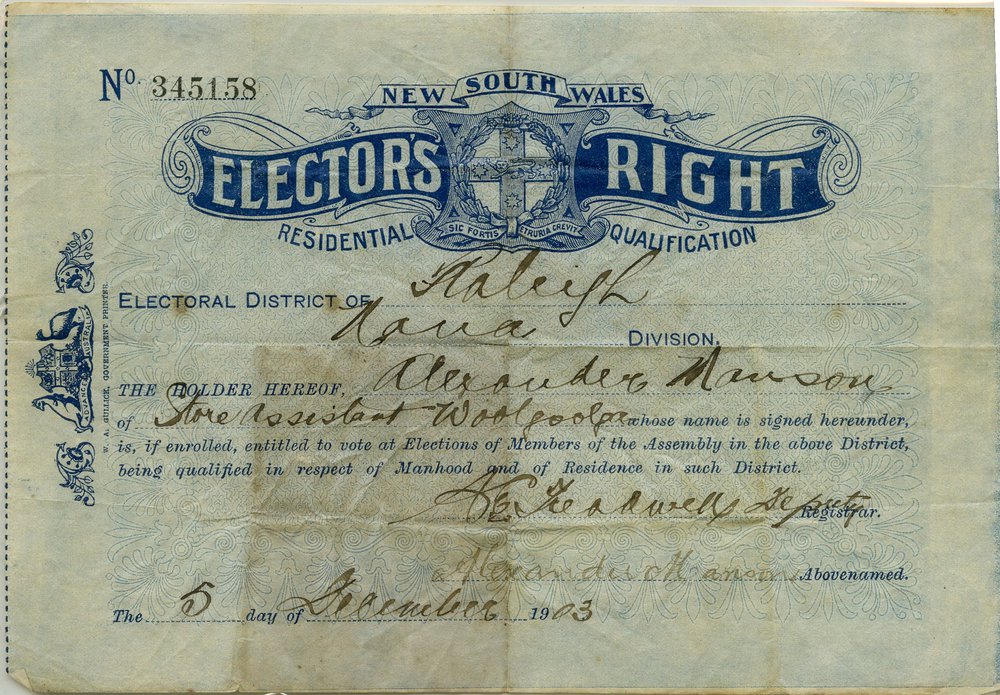 No. 345158
NEW SOUTH WALES
ELECTOR'S RIGHT
SIC FORTIS ETRURIA CREVIT
RESIDENTIAL QUALIFICATION
ELECTORAL DISTRICT OF Raleigh
Nana DIVISION,
THE HOLDER HEREOF, Alexander Manson
of Store Assistant Woolgoolga whose name is signed hereunder,
is, if enrolled, entitled to vote at Elections of Members of the Assembly in the above District,
being qualified in respect of Manhood and of Residence in such District.
Treadwell Deputy Registrar.
Alexander Manson Abovenamed.
The 5 day of December 1903
ADVANCE AUSTRALIA
W. A. GULLICK, GOVERNMENT PRINTER.